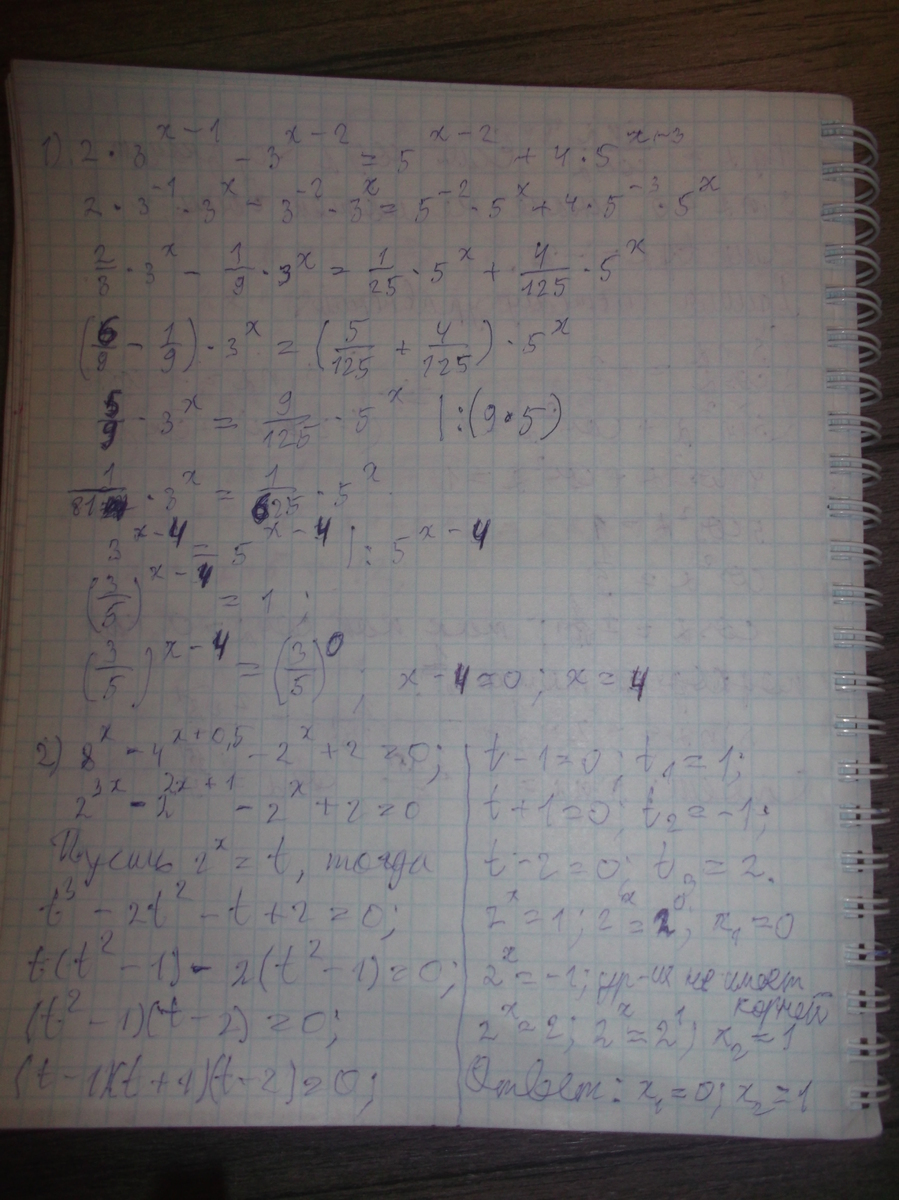 1) 2·3^(x-1) - 3^(x-2) = 5^(x-2) + 4·5^(x-3)
2·3^(-1)·3^x - 3^(-2)·3^x = 5^(-2)·5^x + 4·5^(-3)·5^x
2/3·3^x - 1/9·3^x = 1/25·5^x + 4/125·5^x
(6/9 - 1/9)·3^x = (5/125 + 4/125)·5^x
5/9·3^x = 9/125·5^x |:(9·5)
1/81·3^x = 1/625·5^x
3^(x-4) = 5^(x-4) |: 5^(x-4)
(3/5)^(x-4) = 1;
(3/5)^(x-4) = (3/5)^0; x-4=0; x=4
2) 8^x - 4^(x+0,5) - 2^x + 2 = 0;
2^(3x) - 2^(2x+1) - 2^x + 2 = 0
Пусть 2^x = t, тогда
t^3 - 2t^2 - t + 2 = 0;
t(t^2 - 1) - 2(t^2 - 1) = 0;
(t^2 - 1)(t - 2) = 0;
(t - 1)(t + 1)(t - 2) = 0;
t-1=0; t₁=1;
t+1=0; t₂=-1;
t-2=0; t₃=2.
2^x=1; 2^x=2^0; x₁=0
2^x=-1; ур-ия не имеет
корней
2^x=2; 2^x=2^1; x₂=1
Ответ: x₁=0; x₂=1